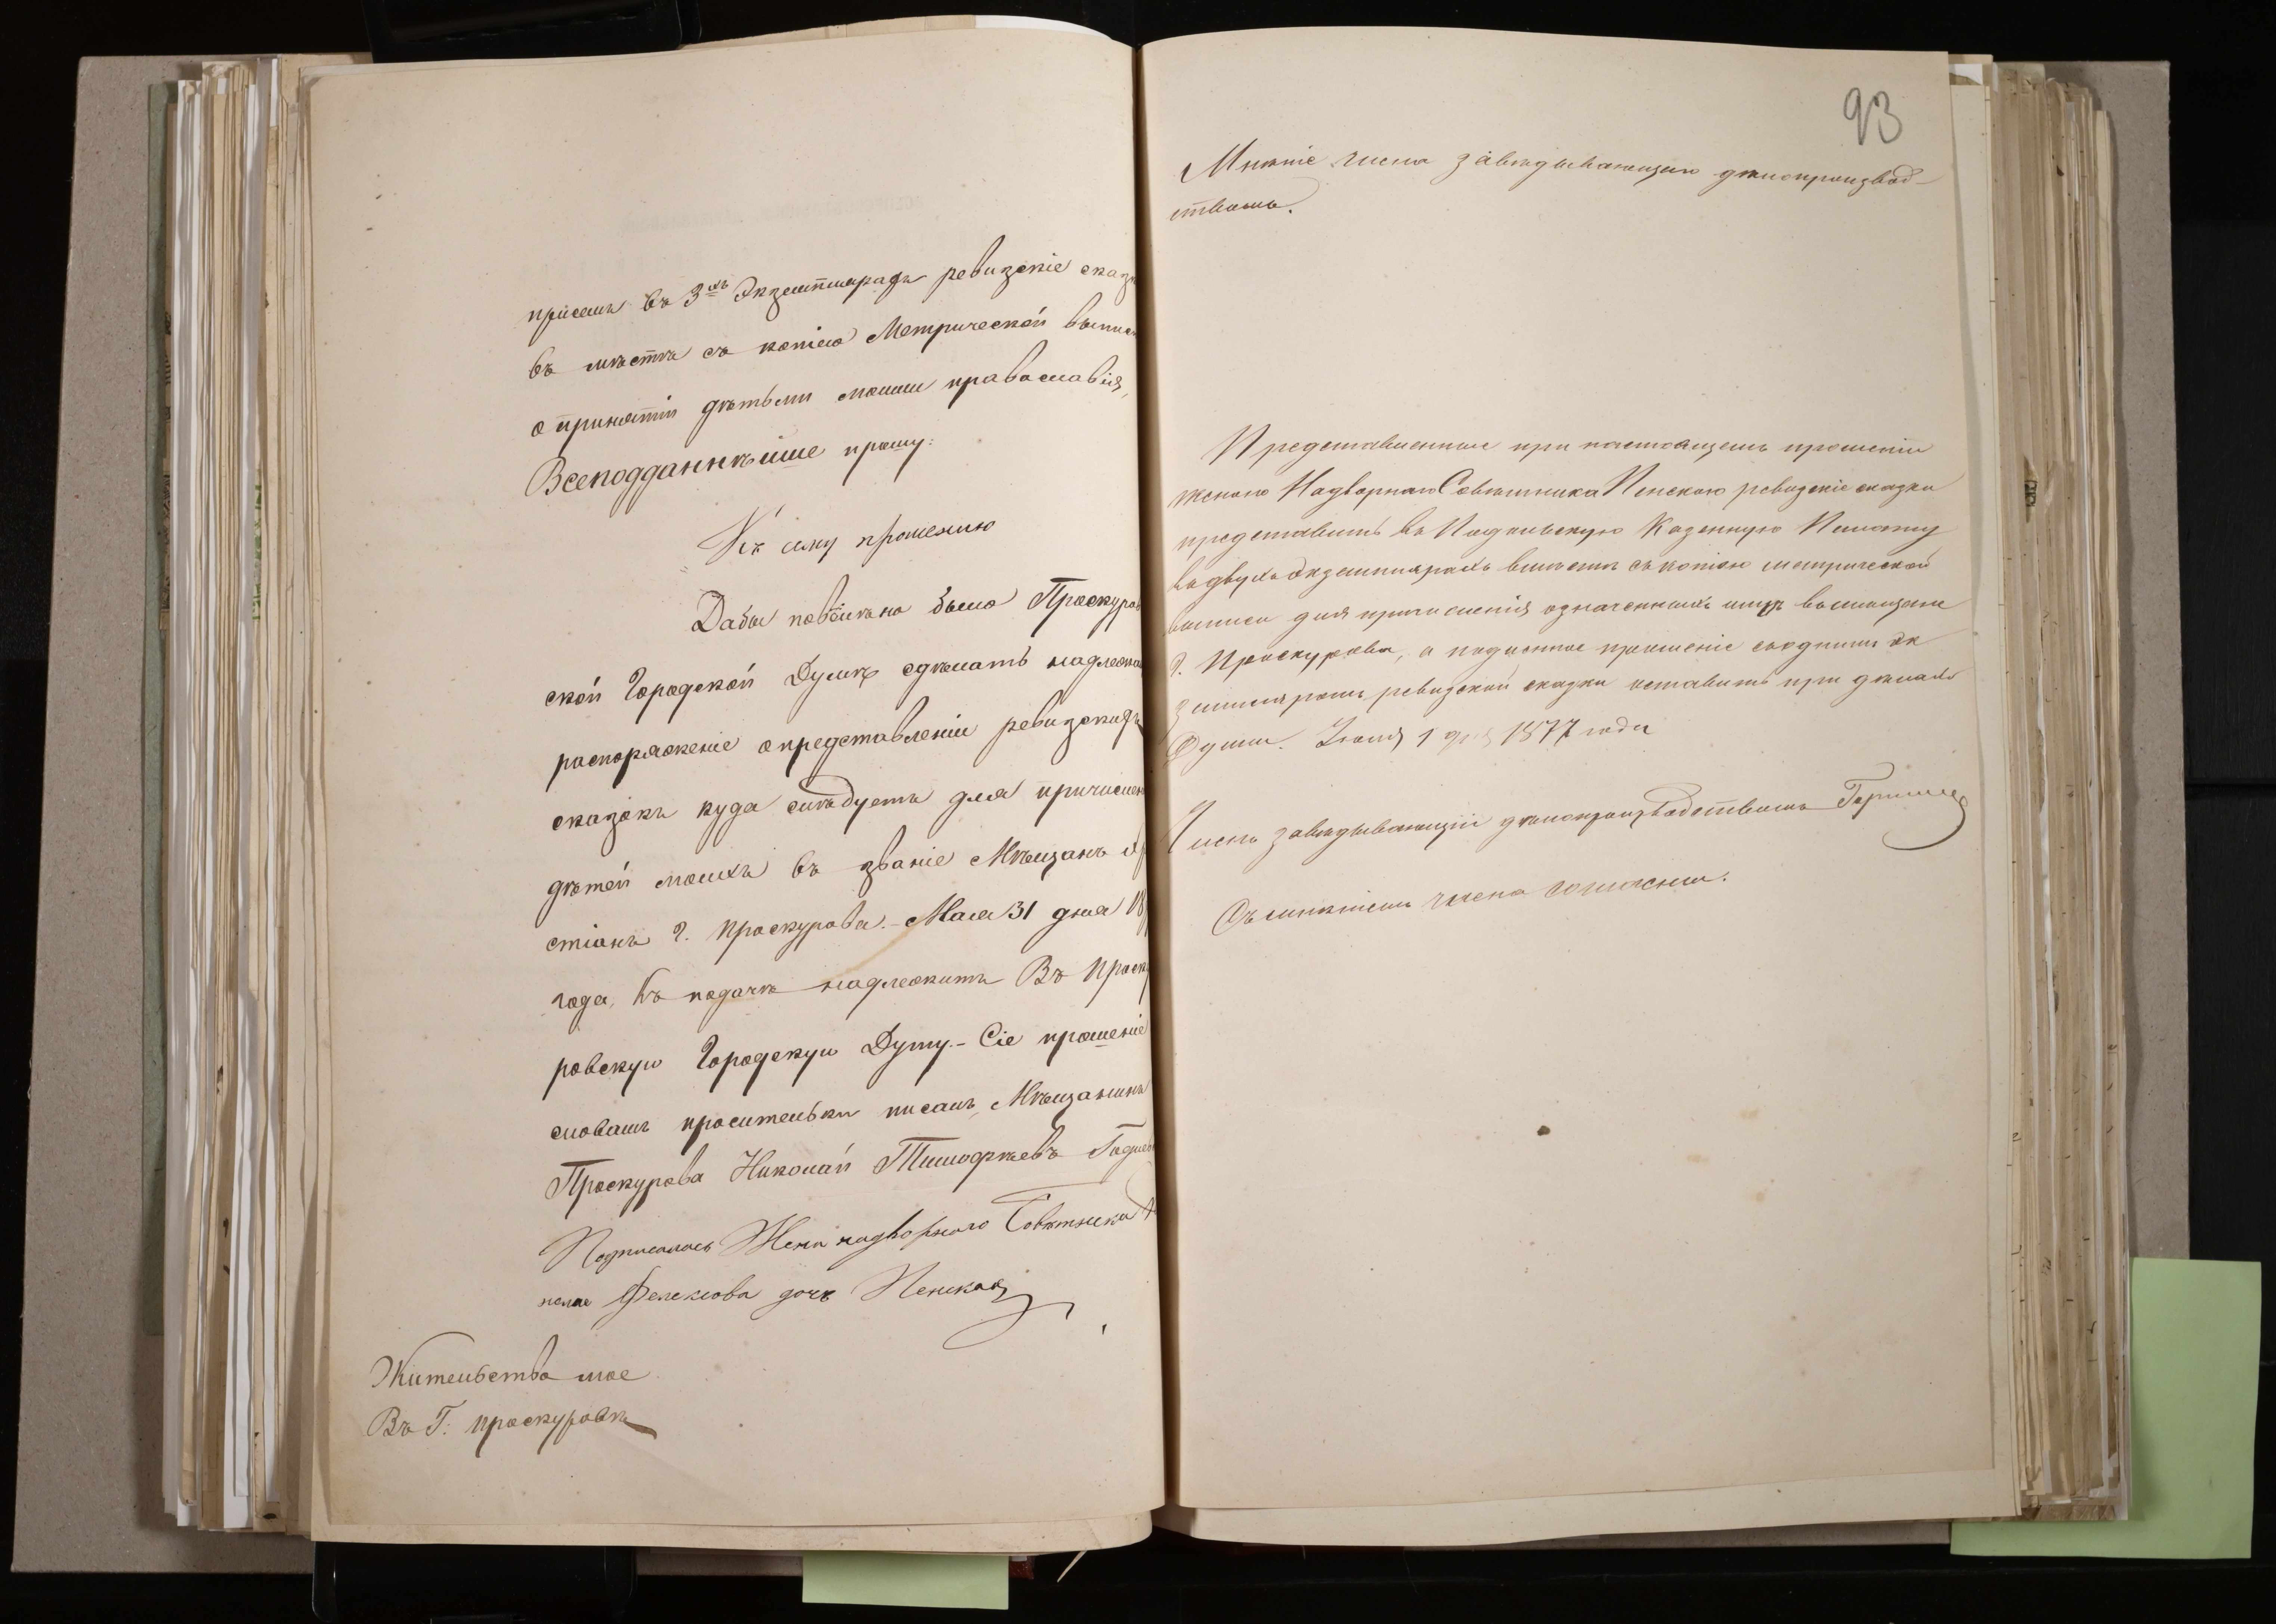 присемъ въ 3хъ Экземпляръ ревизскіе сказ
въ мѣстѣ съ копіею Метрической выпис
о принятіи дѣтьми моими православія,
Всеподданнѣйше прошу:
Къ сему прошенію
Дабы повѣлѣно было Проскуров
ской Городской Думѣ сдѣлать надлежа
распоряженіе о представленіи ревизскихъ
сказокъ куда слѣдуетъ для причислен
дѣтей моихъ въ званіе Мѣщанъ
стіанъ г. Проскурова. - Мая 31 дня 18
года, Къ подачѣ надлежитъ Въ Проску
ровскую Городскую Думу. - Сіе прошеніе
словамъ просительки писалъ Мѣщанинъ
Проскурова Николай Тимофѣевъ
Подписалась Жена надворного Совѣтника
дочь Пенская
Жительство мое
Въ Г: Проскуровѣ
93
Мнѣніе члена завѣдывающаго дѣлопроизвод-
ствомъ.
Представленные при настоящемъ прошеніи
женою Надворнаго Совѣтника Пенскою ревизскіе сказки
представить въ Подольскую Казенную Палату
въ двухъ Экземплярахъ вмѣстѣ съ копіею метрической
выписи для причисленія означенныхъ лицъ въ мѣщане
г. Проскурова, а подлинное прошеніе съ однимъ эк
земпляромъ ревизской сказки оставить при дѣлахъ
Думы. 1 дня 1877 года
Членъ завѣдывающій дѣлопроизводствомъ
Съ мнѣніемъ члена согласны.